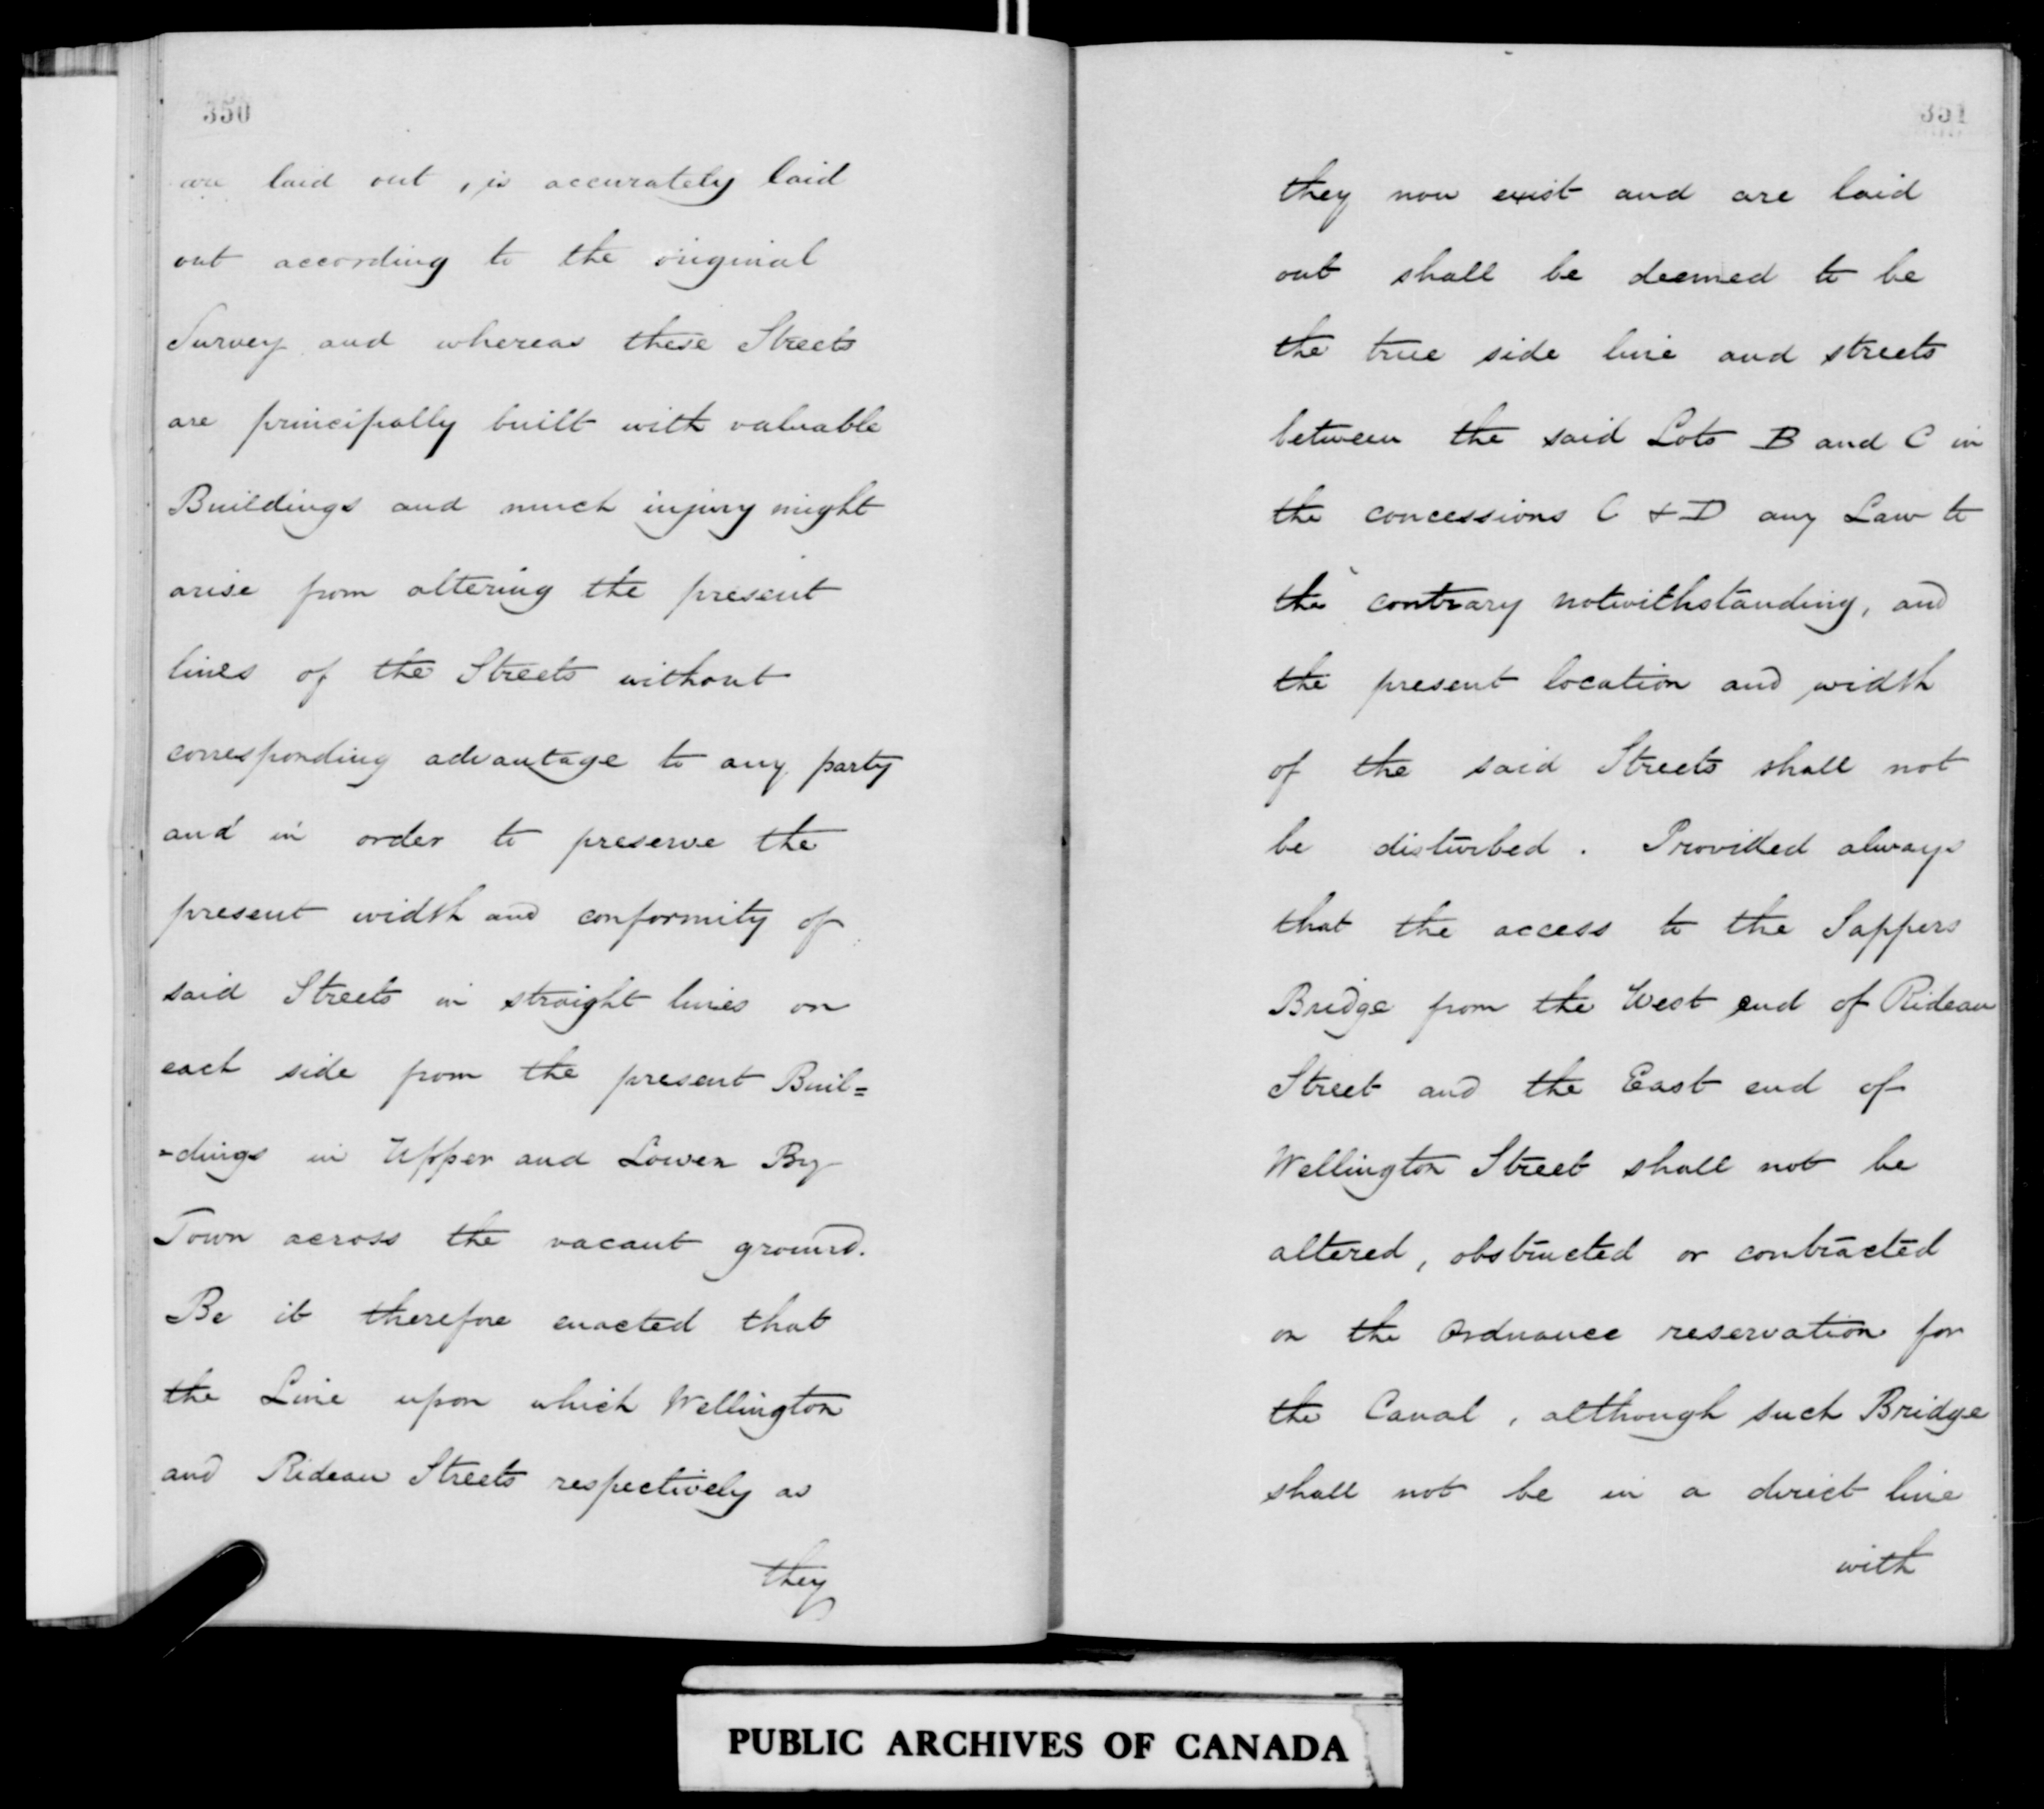 350
are laid out, is accurately laid
out according to the original
Survey and whereas these Streets
are principally built with valuable
Buildings and much injury might
arise from altering the present
lines of the Streets without
corresponding advantage to any party
and in order to preserve the
present width and conformity of
said Streets in straight lines on
each side from the present Buil=
=dings in Upper and Lower By
Town across the vacant ground.
Be it therefore enacted that
the Line upon which Wellington
and Rideau Streets respectively as
they
351
they now exist and are laid
out shall be deemed to be
the true side line and streets
between the said Lots B and C in
the concessions C & D any Law to
the contrary notwithstanding, and
the present location and width
of the said Streets shall not
be disturbed. Provided always
that the access to the Sappers
Bridge from the West end of Rideau
Street and the East end of
Wellington Street shall not be
altered, obstructed or contracted
on the Ordnance reservation for
the Canal, although such Bridge
shall not be in a direct line
with
PUBLIC ARCHIVES OF CANADA